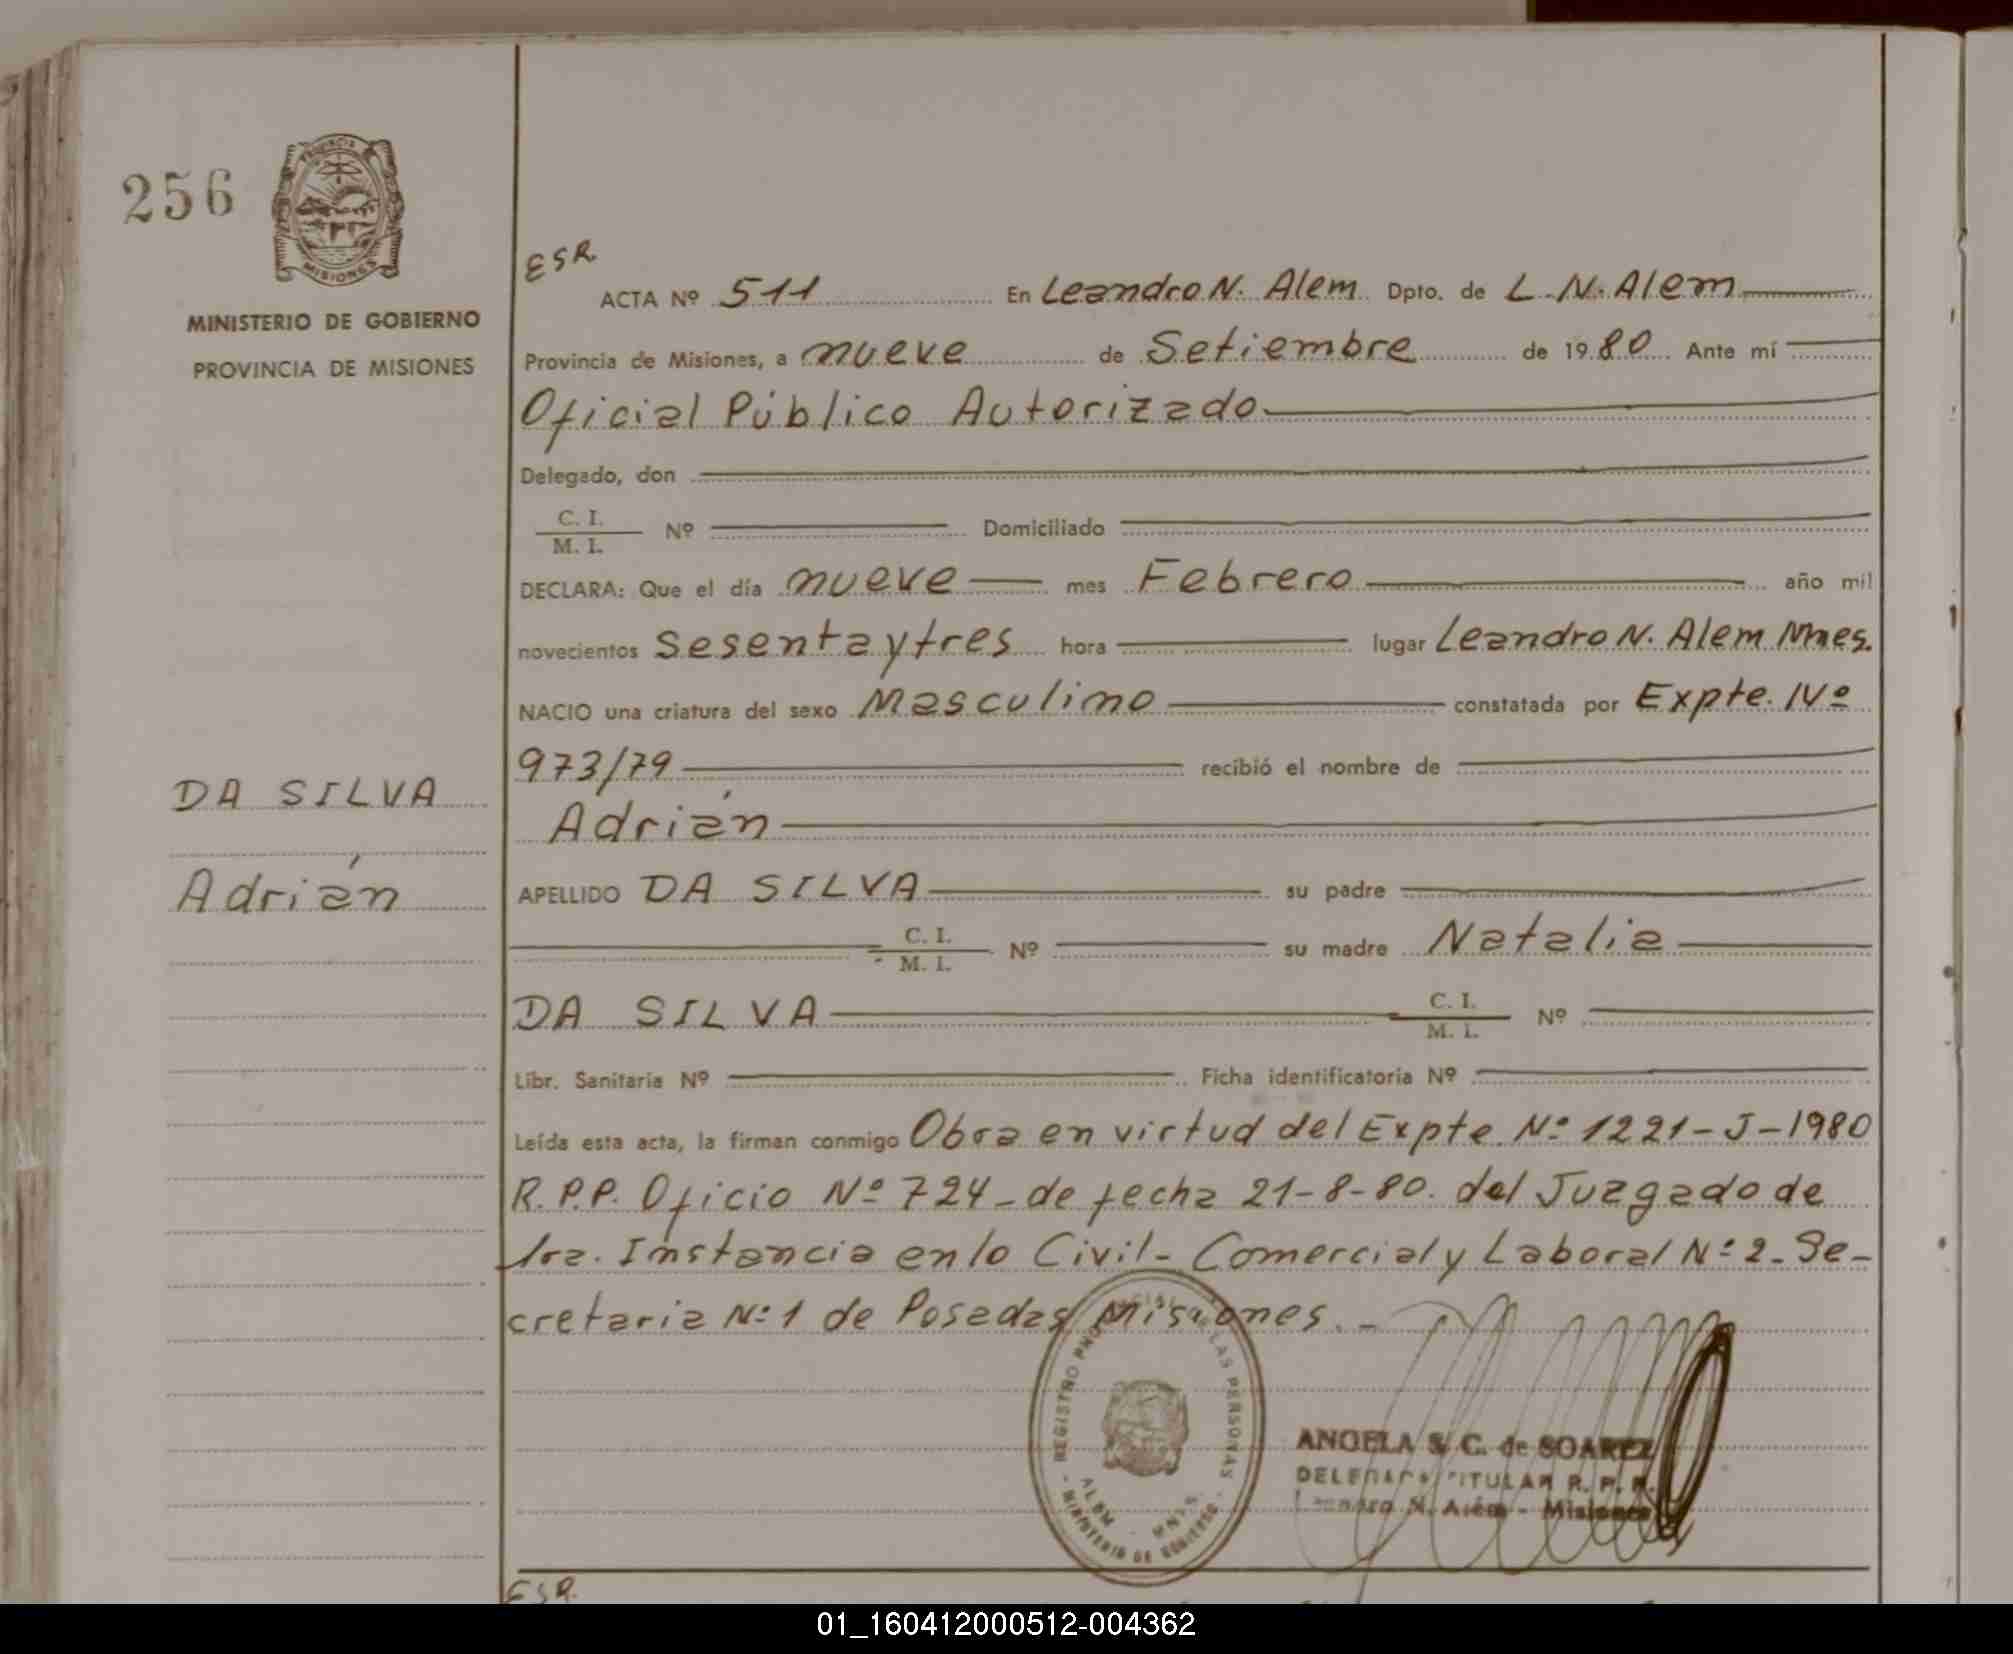 256
PROVINCIA
MISIONES
MINISTERIO DE GOBIERNO
PROVINCIA DE MISIONES
DA SILVA
Adrián
ESR.
ACTA Nº 511 En Leandro N. Alem Dpto. de L. N. Alem
Provincia de Misiones, a nueve de Setiembre de 1980 Ante mí
Oficial Público Autorizado
Delegado, don
C. I.
M. I. Nº Domiciliado
DECLARA: Que el día nueve mes Febrero año mil
novecientos Sesenta y tres hora lugar Leandro N. Alem Mnes.
NACIO una criatura del sexo Masculino constatada por Expte. Nº
973/79 recibió el nombre de
Adrián
APELLIDO DA SILVA su padre
C. I.
M. I. Nº su madre Natalia
DA SILVA C. I.
M. I. Nº
Libr. Sanitaria Nº Ficha identificatoria Nº
Leída esta acta, la firman conmigo Obra en virtud del Expte. Nº 1221-J-1980
R.P.P. Oficio Nº 724- de fecha 21-8-80. del Juzgado de
1ra. Instancia en lo Civil- Comercial y Laboral Nº 2- Se-
cretaria Nº 1 de Posadas Misiones.-
REGISTRO PROVINCIAL DE LAS PERSONAS
ALEM - MNES.
MINISTERIO DE GOBIERNO
ANGELA S. C. de SOAREZ
DELEGADA TITULAR R. P. P.
Leandro N. Alem - Misiones
ESR.
01_160412000512-004362